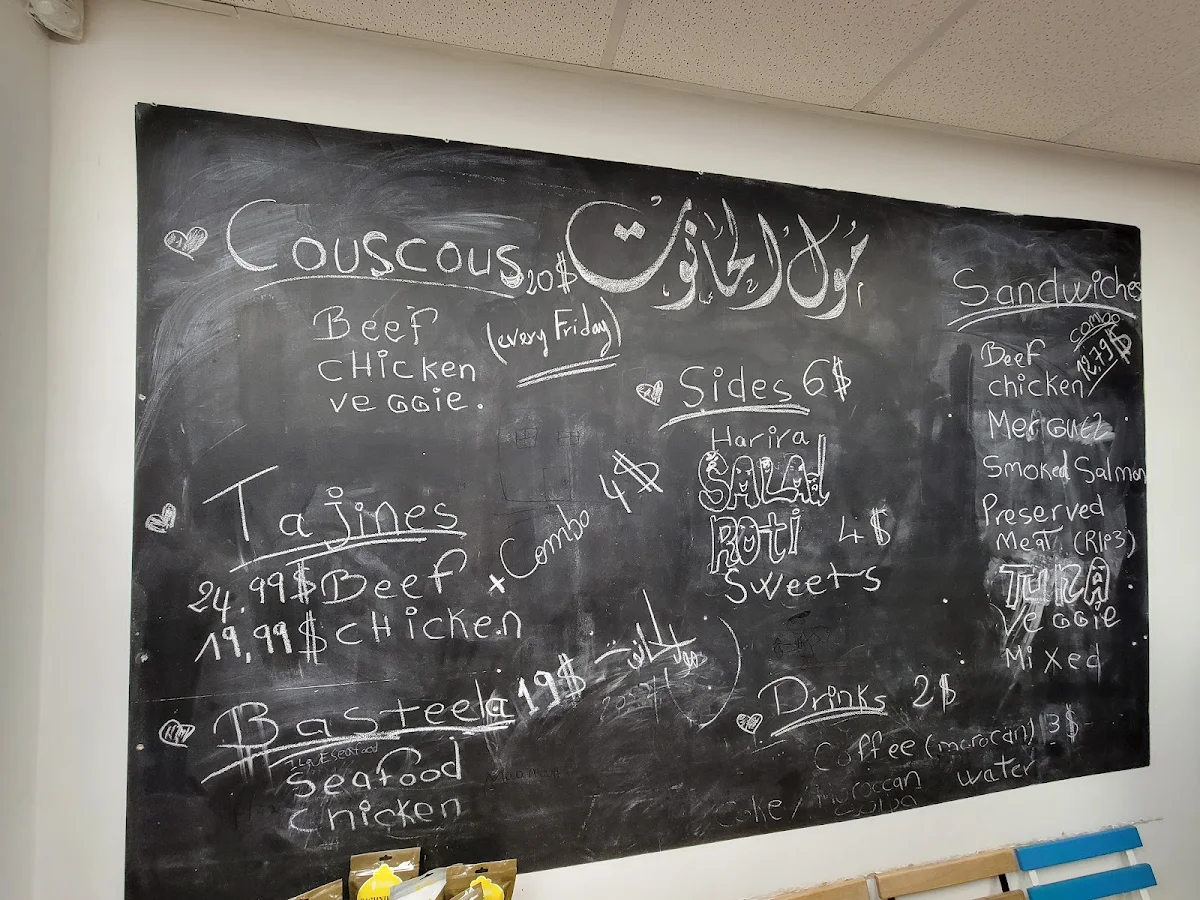 Couscous 20$
Beef
cHicken
veggie.
(every Friday)
مول الحانوت
Tajines
24.99$ Beef
19,99$ cHicken
x Combo 4$
Basteela 19$
Seafood
chicken
مول الحانوت
Sides 6$
Harira
SALAd
ROTi 4$
Sweets
Drinks 2$
Coffee (morocan) 3$
Coke / moroccan water
Sandwiches
combo
12,79$
Beef
chicken
Merguez
Smoked Salmon
Preserved
Meat (Rlo3)
TUNA
Veggie
Mixed